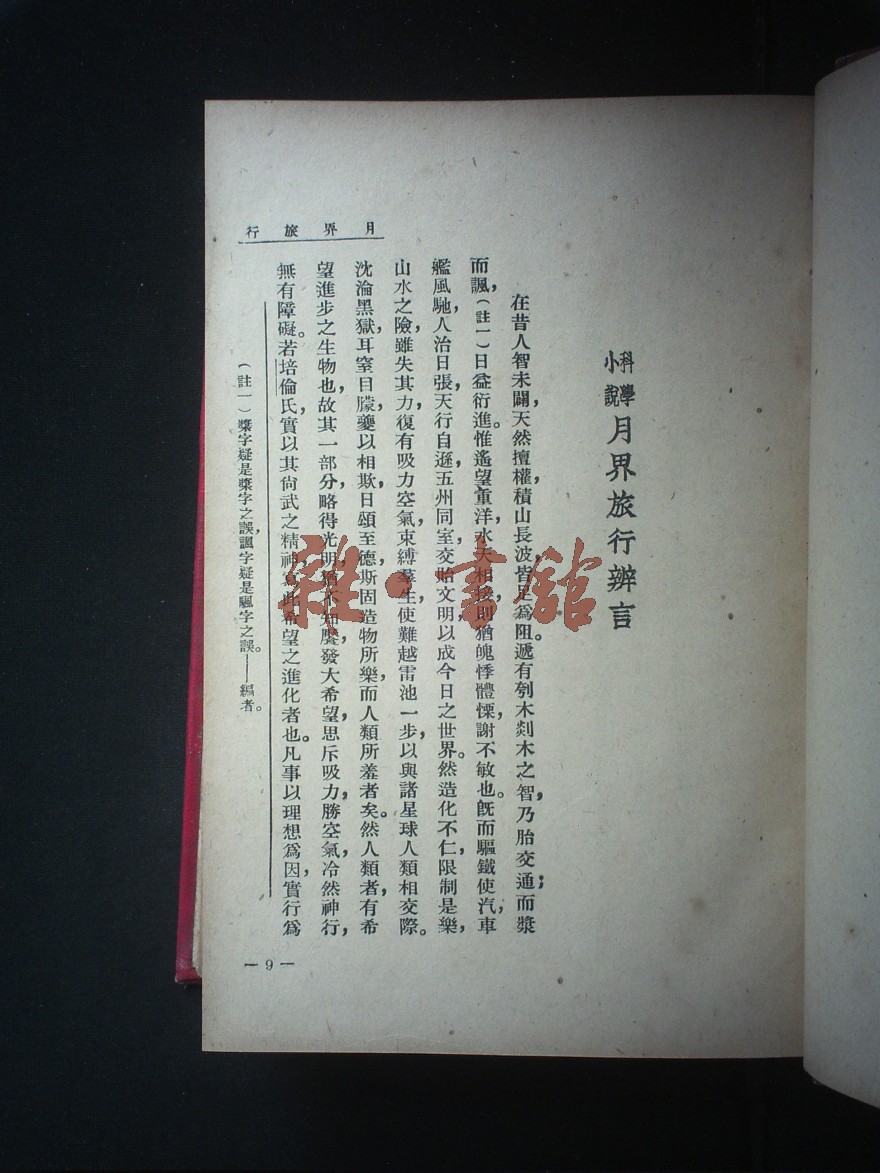 科學
小說
月界旅行辨言
在昔人智未闢,天然擅權,積山長波,皆足爲阻。遞有刳木剡木之智,乃胎交通;而漿
而諷,(註一)日益衍進。惟遙望重洋,水天相接,則猶魄悸體慄,謝不敏也。旣而驅鐵使汽,車
艦風馳,人治日張,天行自遜,五州同室,交貽文明,以成今日之世界。然造化不仁,限制是樂,
山水之險,雖失其力,復有吸力空氣,束縛羣生,使難越雷池一步,以與諸星球人類相交際。
沈淪黑獄,耳窒目朦,夔以相欺,日頌至德,斯固造物所樂,而人類所羞者矣。然人類者,有希
望進步之生物也,故其一部分,略得光明,猶不知饜,發大希望,思斥吸力,勝空氣,冷然神行,
無有障礙。若培倫氏,實以其尙武之精神,寫此希望之進化者也。凡事以理想爲因,實行爲
(註一)漿字疑是槳字之誤,諷字疑是颿字之誤。——編者。
月界旅行
— 9 —
雜·書館